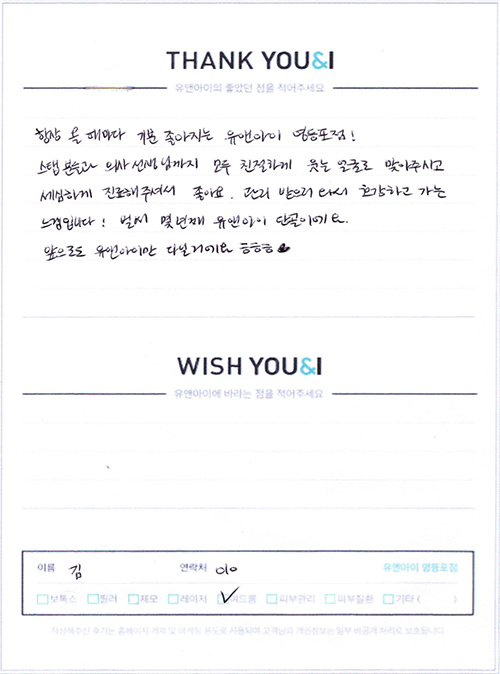 THANK YOU&I
유앤아이의 좋았던 점을 적어주세요
항상 올 때마다 기분 좋아지는 유앤아이 영등포점!
스탭분들과 의사선생님까지 모두 친절하게 웃는 얼굴로 맞아주시고
세심하게 진료해주셔서 좋아요. 관리 받으러 다시 가는
느낌입니다! 벌써 몇년째 유앤아이 단골이에요.
앞으로도 유앤아이만 다닐거에요 ㅎㅎㅎ
WISH YOU&I
유앤아이에 바라는 점을 적어주세요
이름 김 연락처 010 유앤아이 영등포점
보톡스 필러 제모 레이저 여드름 피부관리 피부질환 기타 ( )
작성해주신 후기는 홈페이지 게재 및 마케팅 용도로 사용되며 고객님의 개인정보는 일부 비공개 처리로 보호됩니다.